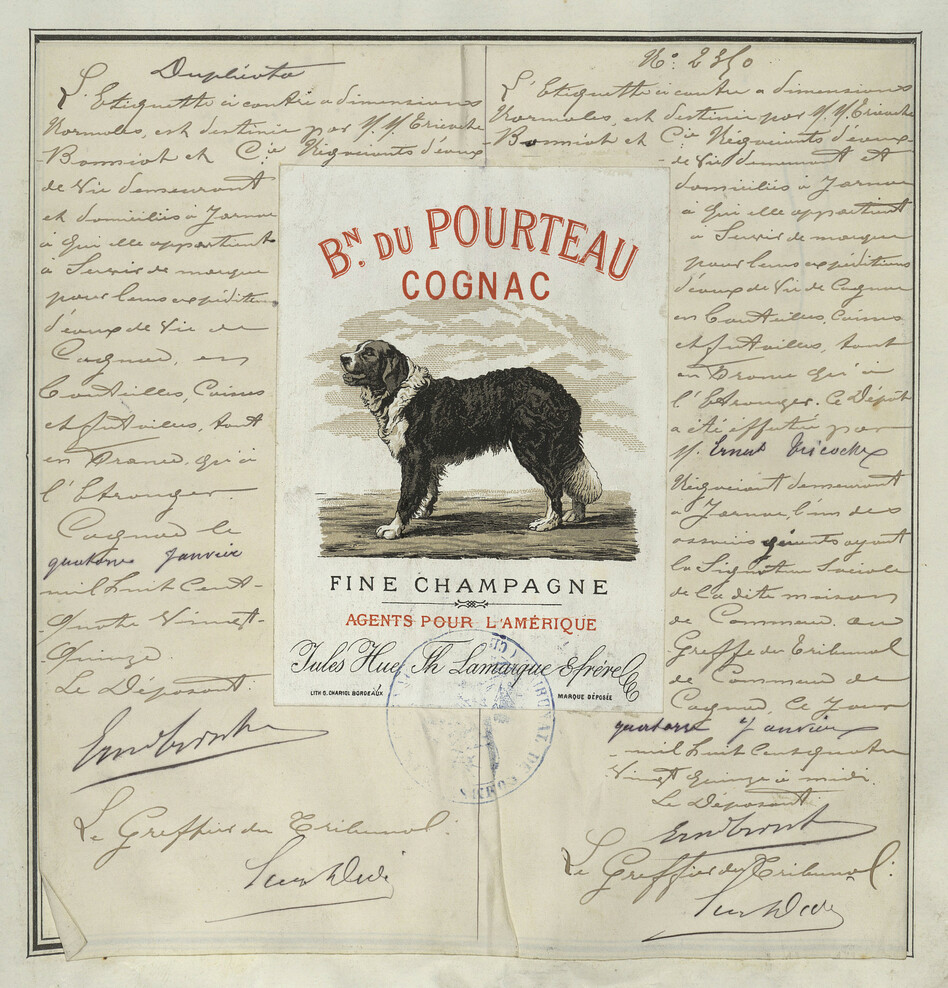 Duplicata
L'Etiquette ci contre a dimensions
Normales, est destinée par M.M. Tricoche
Bonniot et Cie Négociants d'eaux
de Vie demeurant
et domiciliés à Jarnac
à qui elle appartient
à Servir de marque
pour leurs expéditions
d'eaux de Vie de
Cognac, en
Bouteilles, Caisses
et futailles, tant
en France, qu'à
l'Etranger.
Cognac le
quatorze Janvier
mil huit Cent
Quatre Vingt-
Quinze.
Le Déposant.
Le Greffier du Tribunal.
No: 2350
L'Etiquette ci contre a dimensions
Normales, est destinée par M.M. Tricoche
Bonniot et Cie Négociants d'eaux
de Vie demeurant et
domiciliés à Jarnac
à qui elle appartient
à Servir de marque
pour leurs expéditions
d'eaux de Vie de Cognac
en Bouteilles, Caisses
et futailles, tant
en France qu'à
l'Etranger. Ce Dépôt
a été effectué par
M. Ernest Tricoche
Négociant demeurant
à Jarnac, l'un des
associés gérants ayant
la Signature Sociale
de la dite maison
de Commerce, au
Greffe du Tribunal
de Commerce de
Cognac, ce Jour
quatorze Janvier
mil huit Cent quatre
Vingt Quinze à midi.
Le Déposant
Le Greffier du Tribunal:
BN. DU POURTEAU
COGNAC
FINE CHAMPAGNE
AGENTS POUR L'AMÉRIQUE
Jules Hue, Th Lamarque & frère
LITH G. CHARIOL BORDEAUX
MARQUE DÉPOSÉE
TRIBUNAL DE